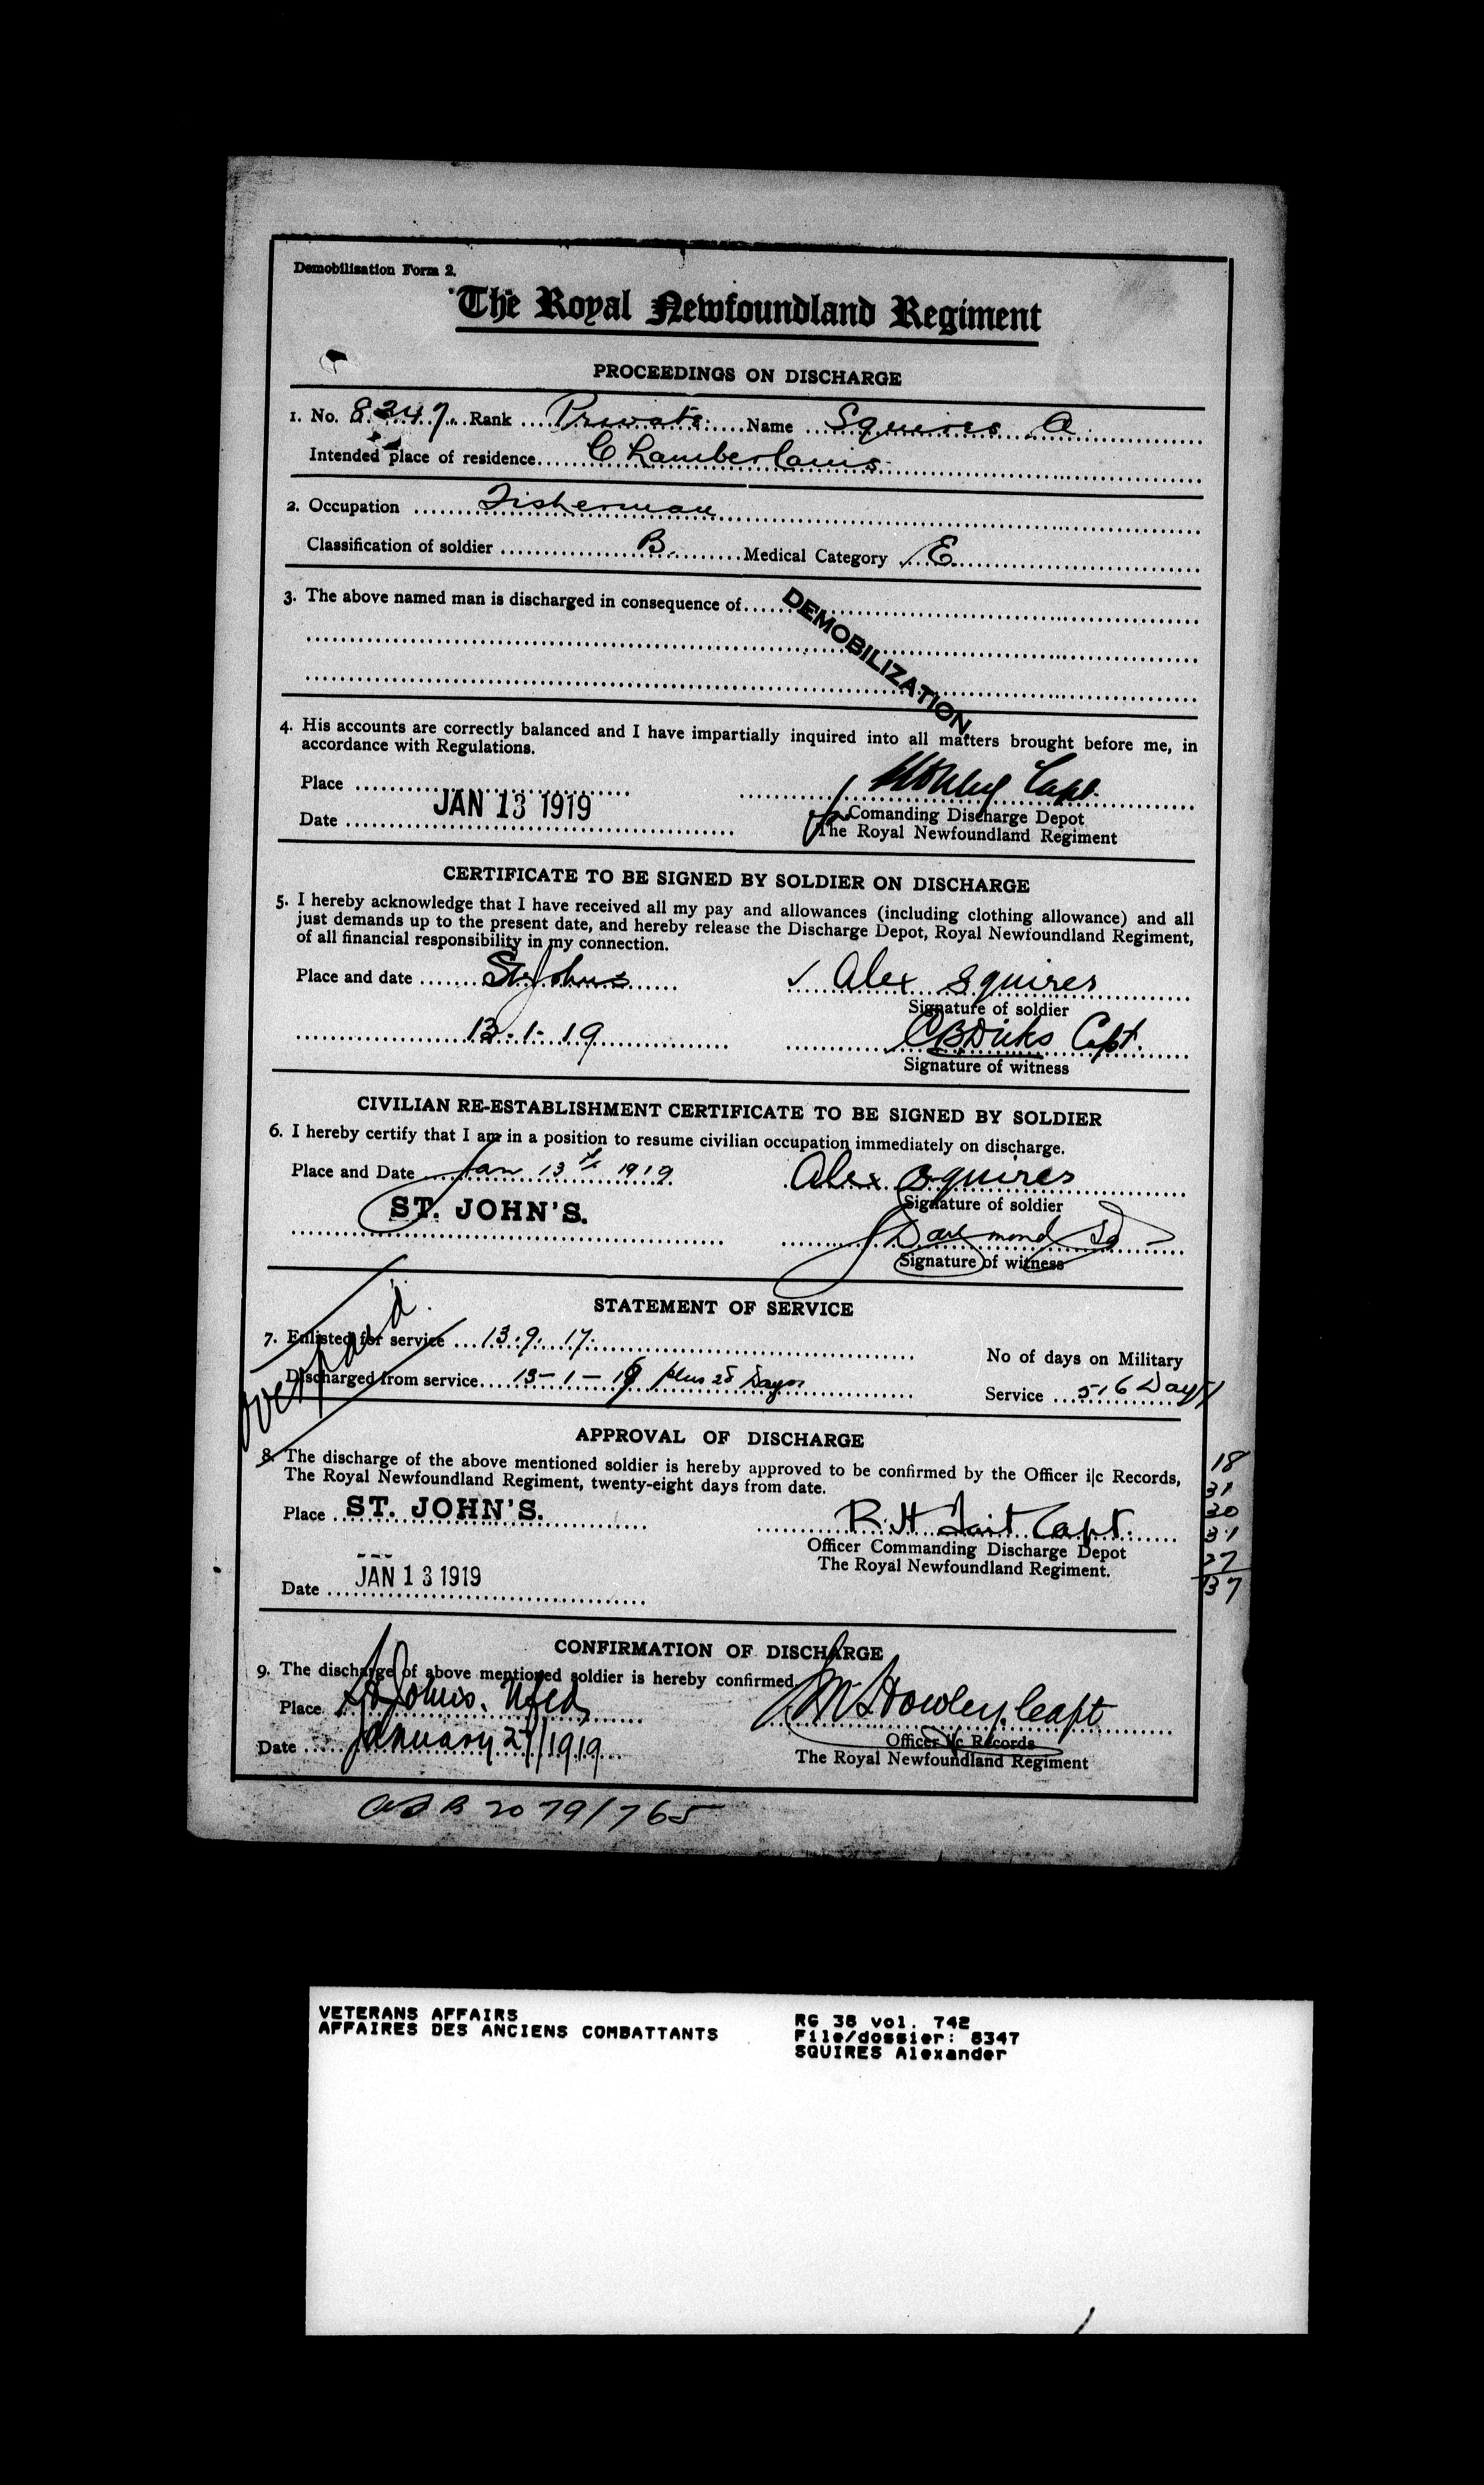 Demobilisation Form 2.
The Royal Newfoundland Regiment
PROCEEDINGS ON DISCHARGE
1. No. 8347 Rank Private Name Squires A
Intended place of residence Chamberlains
2. Occupation Fisherman
Classification of soldier B. Medical Category E.
3. The above named man is discharged in consequence of DEMOBILIZATION
4. His accounts are correctly balanced and I have impartially inquired into all matters brought before me, in
accordance with Regulations.
Place Capt.
Date JAN 13 1919
for Comanding Discharge Depot
The Royal Newfoundland Regiment
CERTIFICATE TO BE SIGNED BY SOLDIER ON DISCHARGE
5. I hereby acknowledge that I have received all my pay and allowances (including clothing allowance) and all
just demands up to the present date, and hereby release the Discharge Depot, Royal Newfoundland Regiment,
of all financial responsibility in my connection.
Place and date St. Johns Alex Squires
Signature of soldier
13-1-19 C B Dicks Capt.
Signature of witness
CIVILIAN RE-ESTABLISHMENT CERTIFICATE TO BE SIGNED BY SOLDIER
6. I hereby certify that I am in a position to resume civilian occupation immediately on discharge.
Place and Date Jan 13th 1919 Alex Squires
Signature of soldier
ST. JOHN'S.
Signature of witness
STATEMENT OF SERVICE
overpaid.
7. Enlisted for service 13.9.17. No of days on Military
Discharged from service 13-1-19 plus 28 Days Service 516 Days
APPROVAL OF DISCHARGE
8. The discharge of the above mentioned soldier is hereby approved to be confirmed by the Officer i|c Records,
The Royal Newfoundland Regiment, twenty-eight days from date.
18
31
30
31
27
137
Place ST. JOHN'S. R. H Tait Capt.
Officer Commanding Discharge Depot
The Royal Newfoundland Regiment.
Date JAN 13 1919
CONFIRMATION OF DISCHARGE
9. The discharge of above mentioned soldier is hereby confirmed
Place St Johns. Nfld Howley, Capt
Officer i|c Records
Date January 27/1919
The Royal Newfoundland Regiment
2079/765
VETERANS AFFAIRS RG 38 vol. 742
AFFAIRES DES ANCIENS COMBATTANTS File/dossier: 8347
SQUIRES Alexander